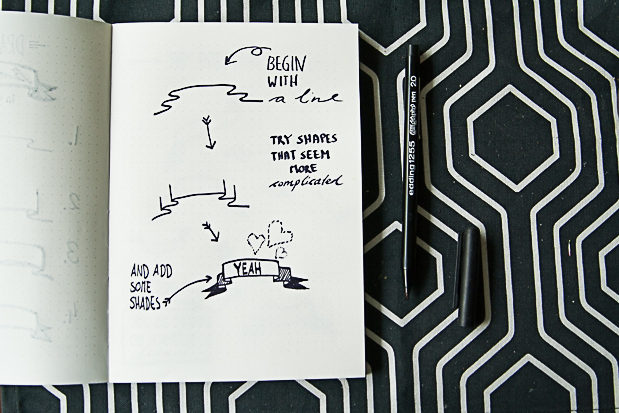 BEGIN
WITH
a line
TRY SHAPES
THAT SEEM
MORE
complicated
AND ADD
SOME
SHADES
YEAH
edding 1255 calligraphy pen 2.0